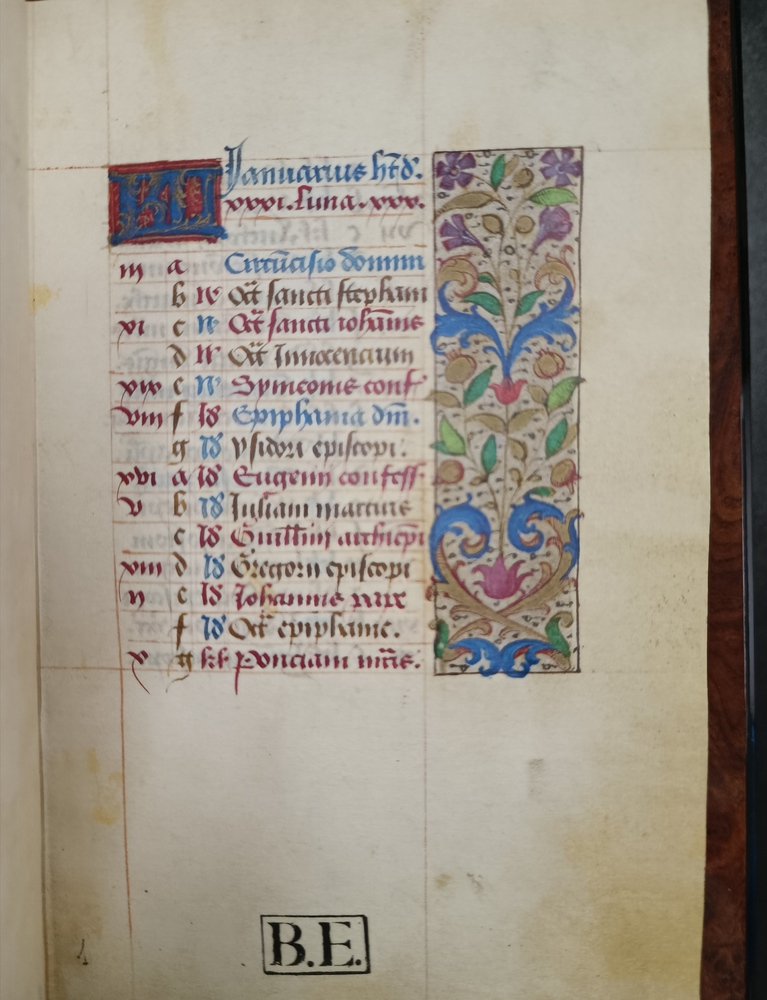 KL Januarius ht̄ d̄.
xxxi. Luna. xxx.
iii a Circūcisio domini
b iv Oct̄ sancti stephani
xi c N Oct̄ sancti iohānis
d N Oct̄ Innocencium
xix e N Symeonis conf
viii f Id Epiphania dn̄i.
g Id ysidori episcopi.
xvi a Id Eugenii confess
v b Id Juliani martiris
c Id Guill̄mi archiep̄i
xiii d Id Gregorii episcopi
ii e Id Johannis pape
f Id Oct̄ epiphanie.
x g kl Ponciani mr̄is.
1
B.E.